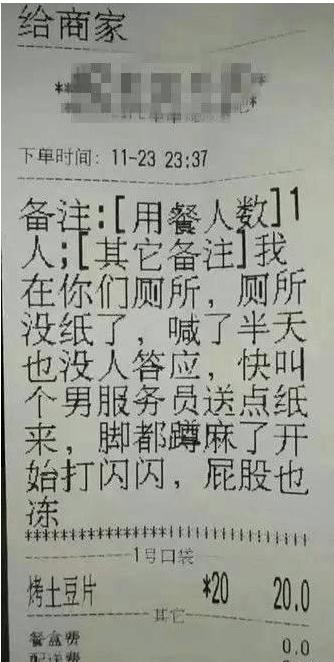 给商家
下单时间: 11-23 23:37
备注:[用餐人数]1
人;[其它备注]我
在你们厕所，厕所
没纸了，喊了半天
也没人答应，快叫
个男服务员送点纸
来，脚都蹲麻了开
始打闪闪，屁股也
冻
1号口袋
烤土豆片 *20 20.0
其它
餐盒费 0.0
配送费